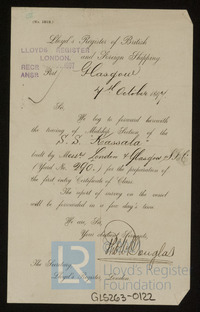 Lloyd's Register of British
and Foreign Shipping
LLOYDS REGISTER
LONDON
RECD
ANSR
Port Glasgow
7th October 1897
Sir,
We beg to forward herewith
the tracing of Midship Section of the
S.S. Kassala
built by Messrs London & Glasgow
(Yard No. 290,) for the preparation of
the first entry Certificate of Class.
The report of survey on the vessel
will be forwarded in a few days' time.
We are, Sir,
Your obedient Servants,
Douglas
The Secretary
Lloyd's Register, London
Lloyd's Register
Foundation
GLS263-0122